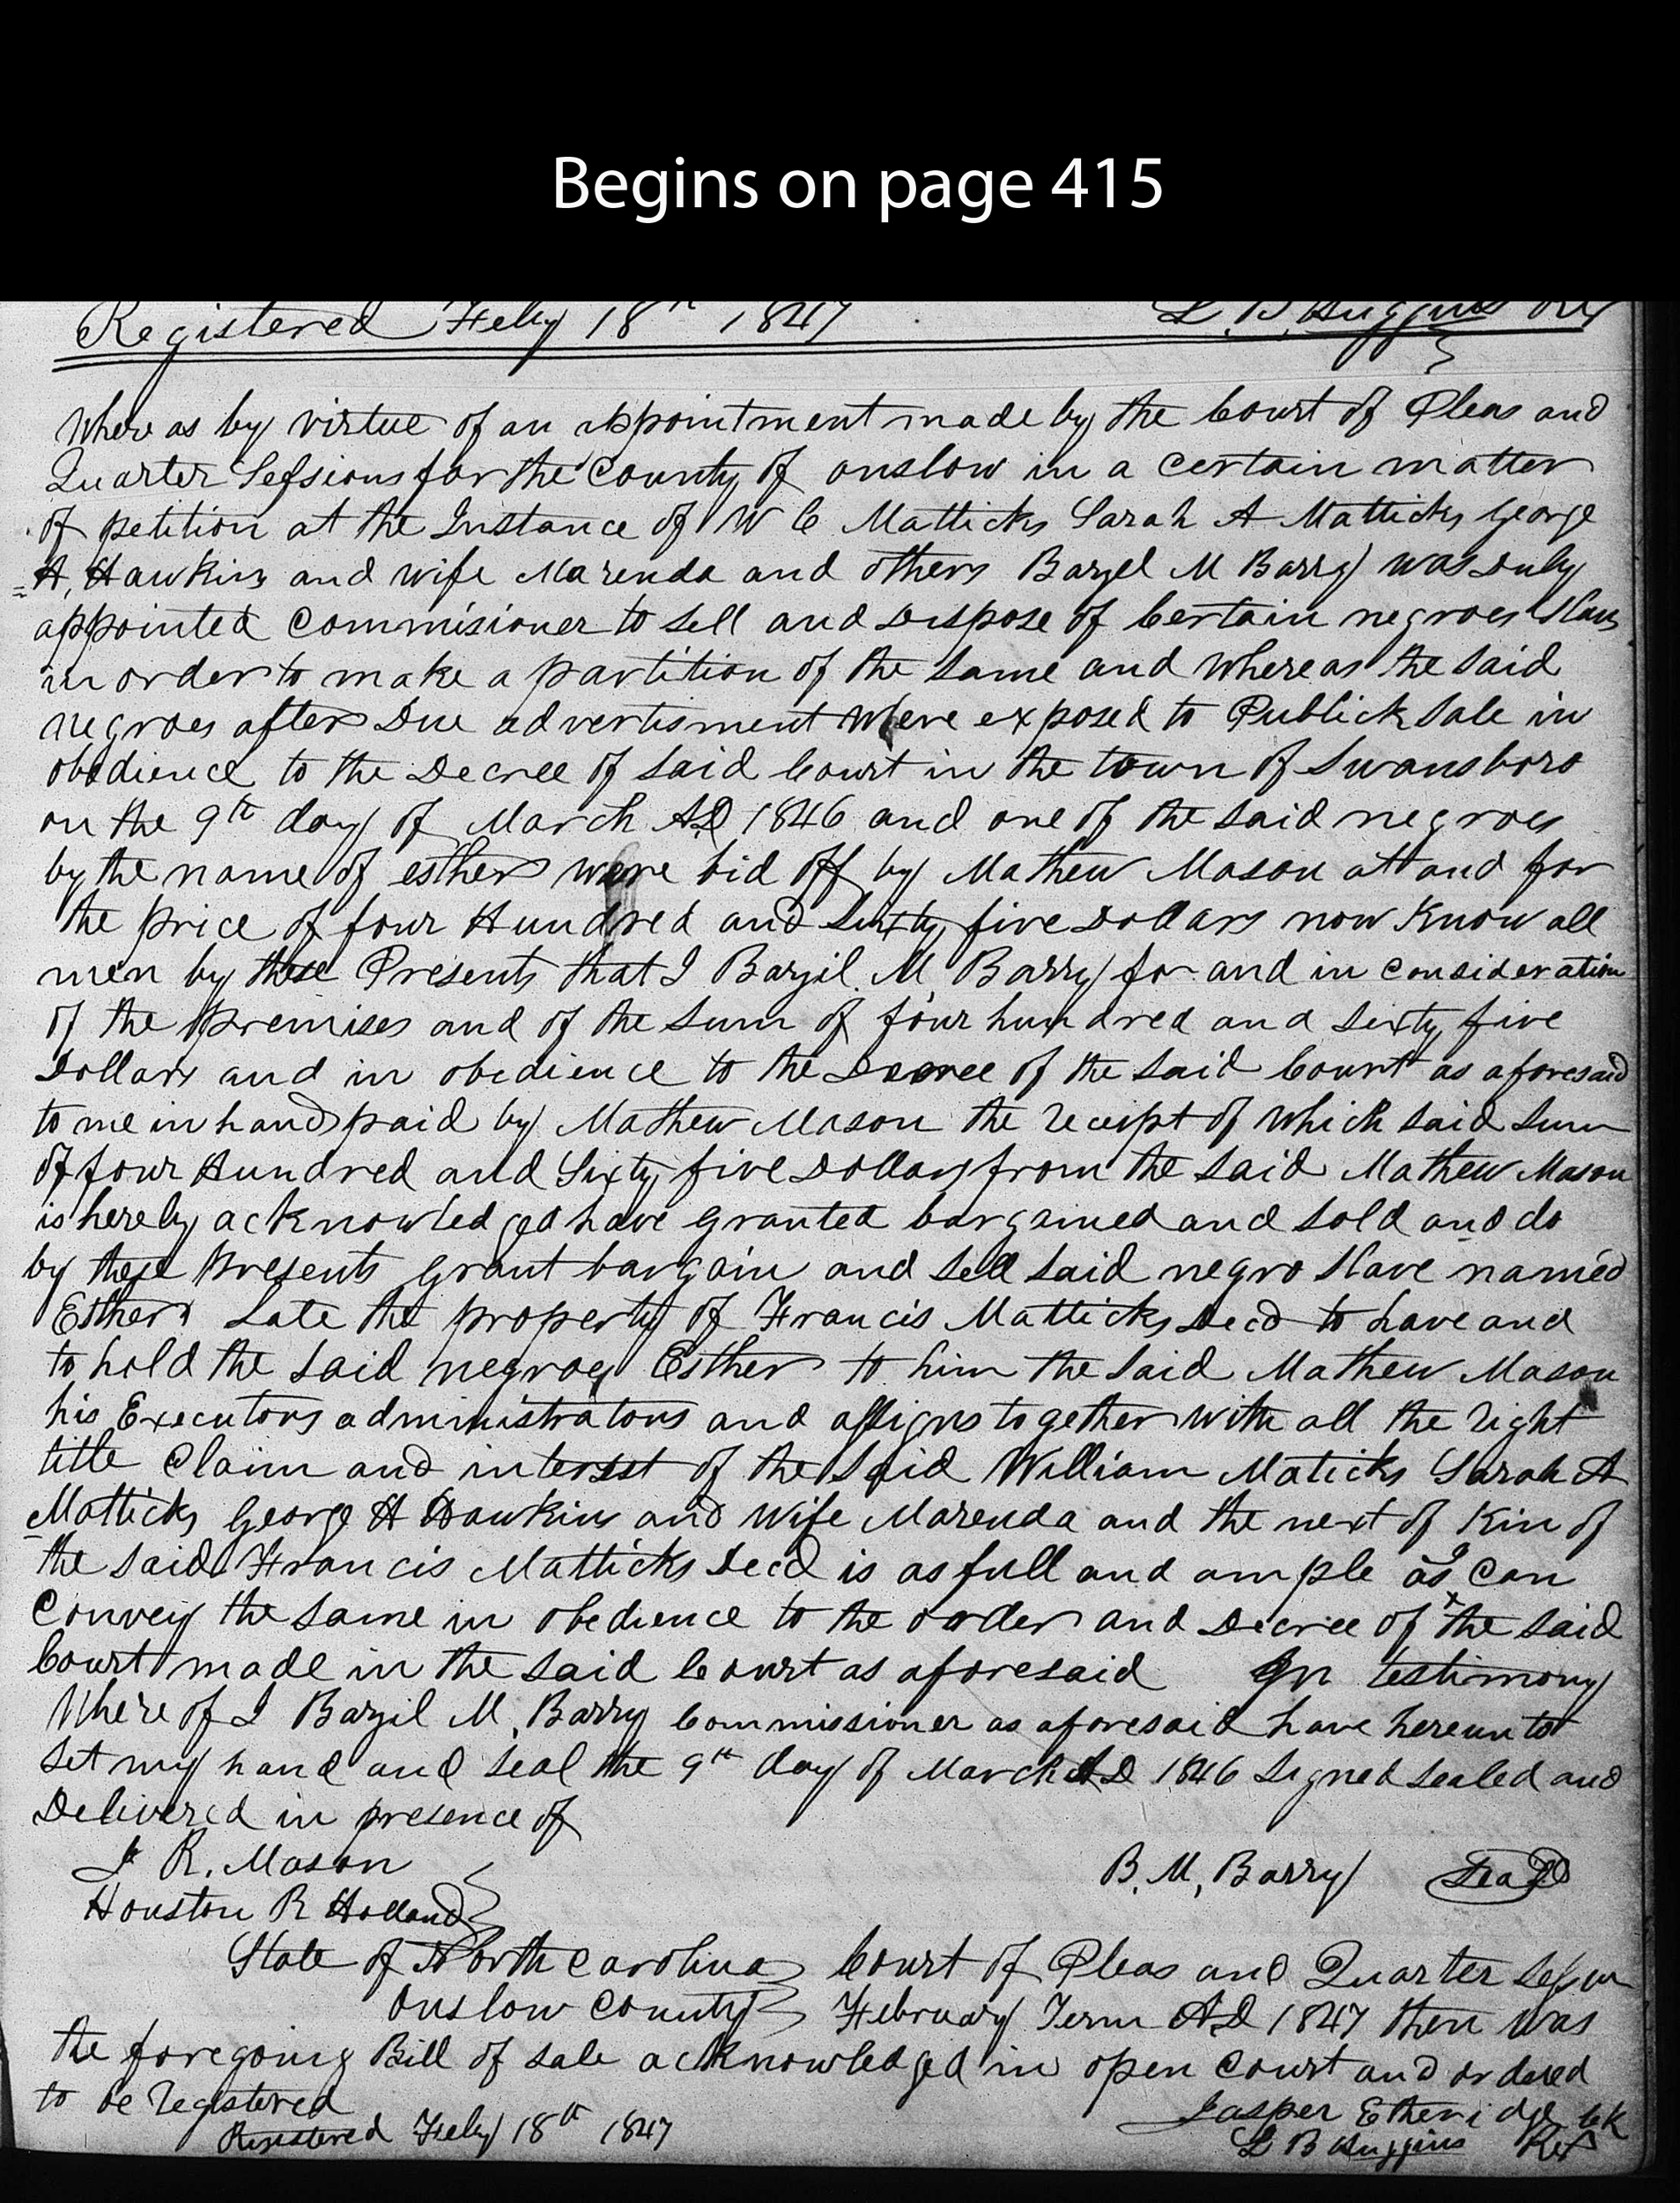 Begins on page 415
Registered Feby 18th 1847 L. B. Huggins Reg
Where as by virtue of an appointment made by the Court of Pleas and
Quarter Sessions for the County of onslow in a certain matter
of petition at the Instance of W C Matticks Sarah A Matticks George
A, Hawkins and wife Marenda and others Bazel M Barry was Duly
appointed Commisioner to sell and Dispose of Certain negroes Slaves
in order to make a partition of the same and whereas the said
negroes after Due advertisment Were exposed to Publick sale in
obedience to the Decree of said Court in the town of Swansboro
on the 9th day of March AD 1846 and one of the said negroes
by the name of esther were bid off by Mathew Mason att and for
the price of four Hundred and Sixty five Dollars now Know all
men by these Presents that I Bazil. M, Barry for and in consideration
of the premises and of the sum of four hundred and sixty five
Dollars and in obedience to the Decree of the said Court as aforesaid
to me in hand paid by Mathew Mason the receipt of which said sum
of four Hundred and Sixty five Dollars from the said Mathew Mason
is hereby acknowledged have granted bargained and sold and do
by these presents grant bargain and sell said negro slave named
Esther Late the property of Francis Matticks Decd to have and
to hold the said negroe Esther to him the said Mathew Mason
his Executors administrators and assigns together with all the right
title Claim and interest of the said William Maticks Sarah A
Matticks George H Hawkins and wife Marenda and the next of Kin of
the said Francis Matticks Decd is as full and ample as I can
Convey the same in obedience to the order and Decree of the said
Court made in the said Court as aforesaid In testimony
Where of I Bazil M, Barry Commissioner as aforesaid have hereunto
set my hand and seal the 9th day of March AD 1846 signed sealed and
Delivered in presence of
J R. Mason B, M, Barry Seal
Houston R Holland
State of North Carolina Court of Pleas and Quarter Session
Onslow County February Term AD 1847 then was
the foregoing Bill of sale acknowledged in open court and ordered
to be registered Jasper Etheridge Clk
Registered Feby 18th 1847 L B Huggins Reg